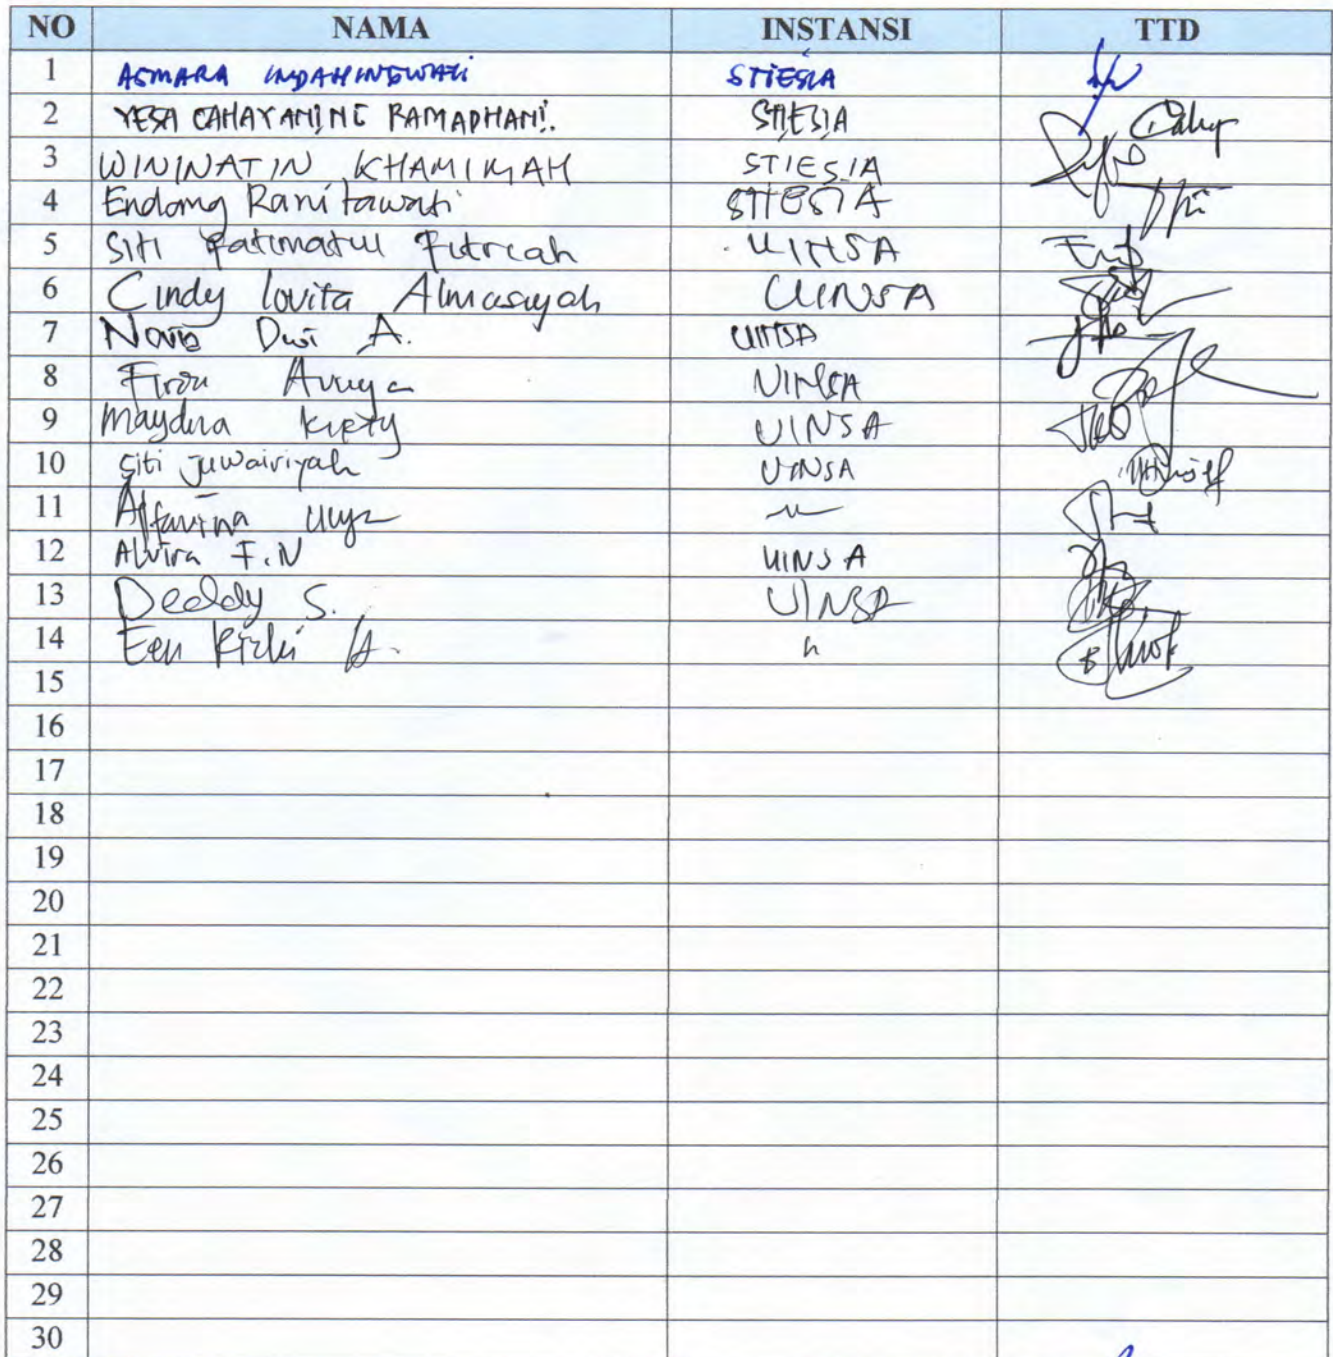 NO NAMA INSTANSI TTD
1 ASMARA INDAHINGWATI STIESIA
2 YESA CAHAYANING RAMADHANI. STIESIA
3 WININATIN KHAMIMAH STIESIA
4 Endang Ranitawati STIESIA
5 Siti Fatimatul Fitriah UINSA
6 Cindy lovita Almasiyah UINSA
7 Novia Dwi A. UINSA
8 UINSA
9 UINSA
10 Siti Juwairiyah UINSA
11 Alfavina
12 Alvira F.N UINSA
13 Deddy S. UINSA
14 Een Rizki A.
15
16
17
18
19
20
21
22
23
24
25
26
27
28
29
30